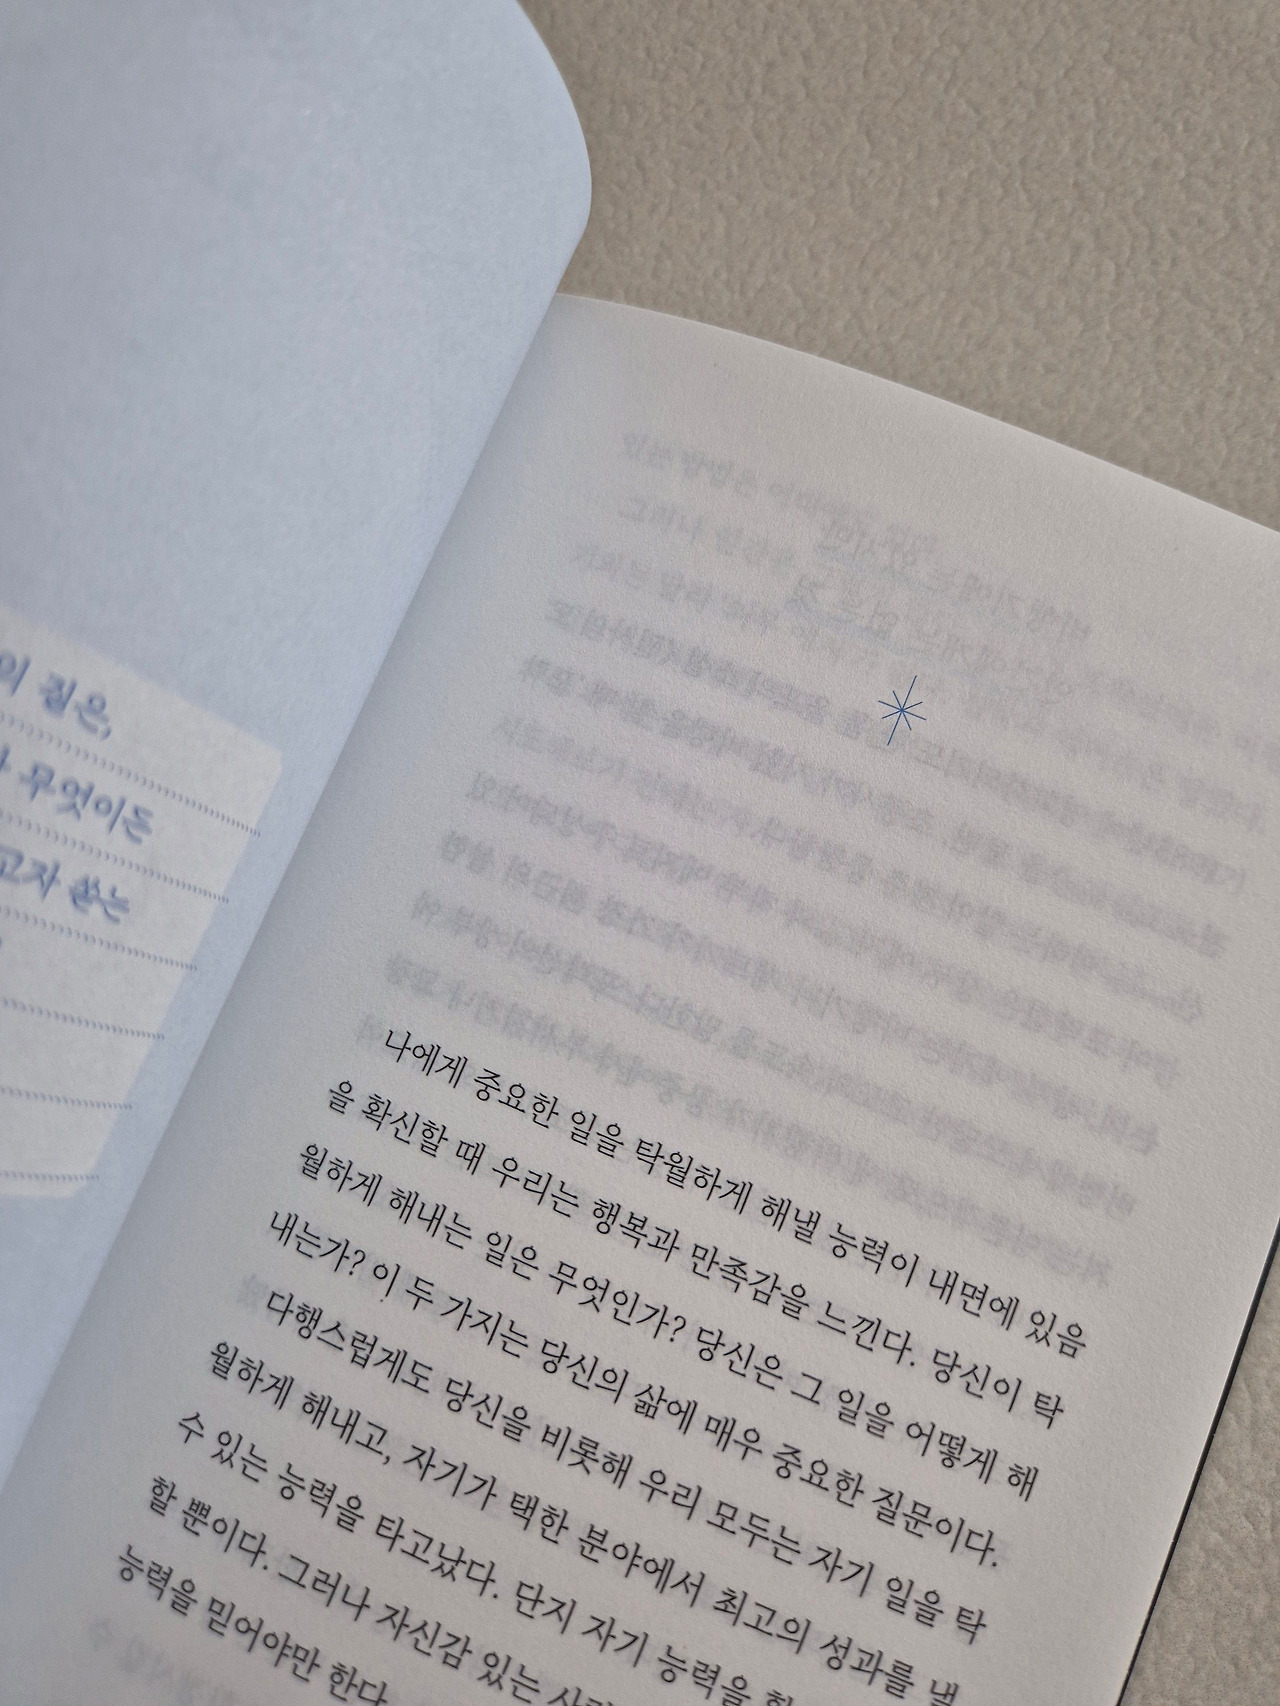 의 질은,
무엇이든
고자 쏟는
나에게 중요한 일을 탁월하게 해낼 능력이 내면에 있음
을 확신할 때 우리는 행복과 만족감을 느낀다. 당신이 탁
월하게 해내는 일은 무엇인가? 당신은 그 일을 어떻게 해
내는가? 이 두 가지는 당신의 삶에 매우 중요한 질문이다.
다행스럽게도 당신을 비롯해 우리 모두는 자기 일을 탁
월하게 해내고, 자기가 택한 분야에서 최고의 성과를 낼
수 있는 능력을 타고났다. 단지 자기 능력을
할 뿐이다. 그러나 자신감 있는
능력을 믿어야만 한다